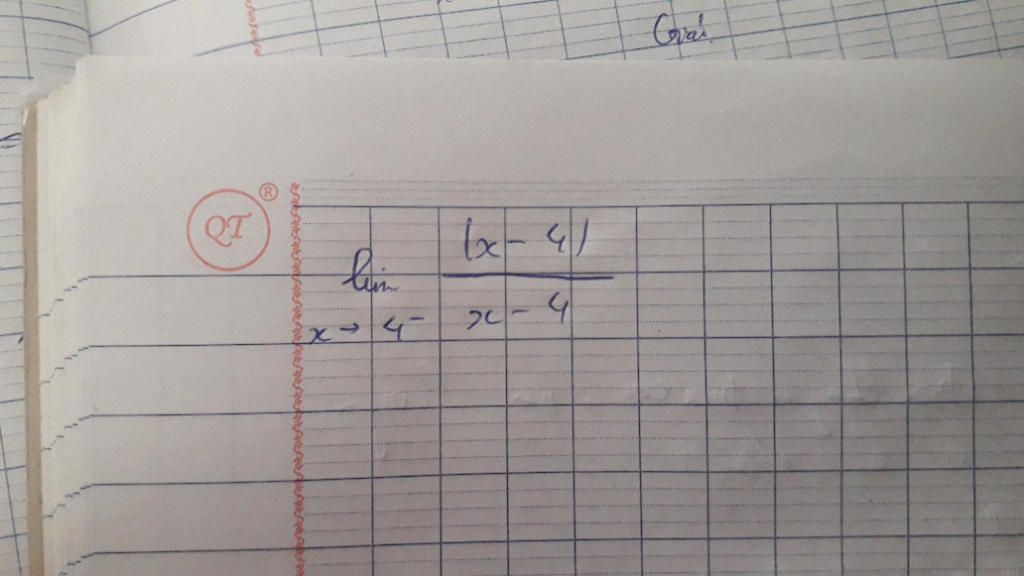 Giải
QT ®
lim |x - 4| / x - 4
x → 4⁻